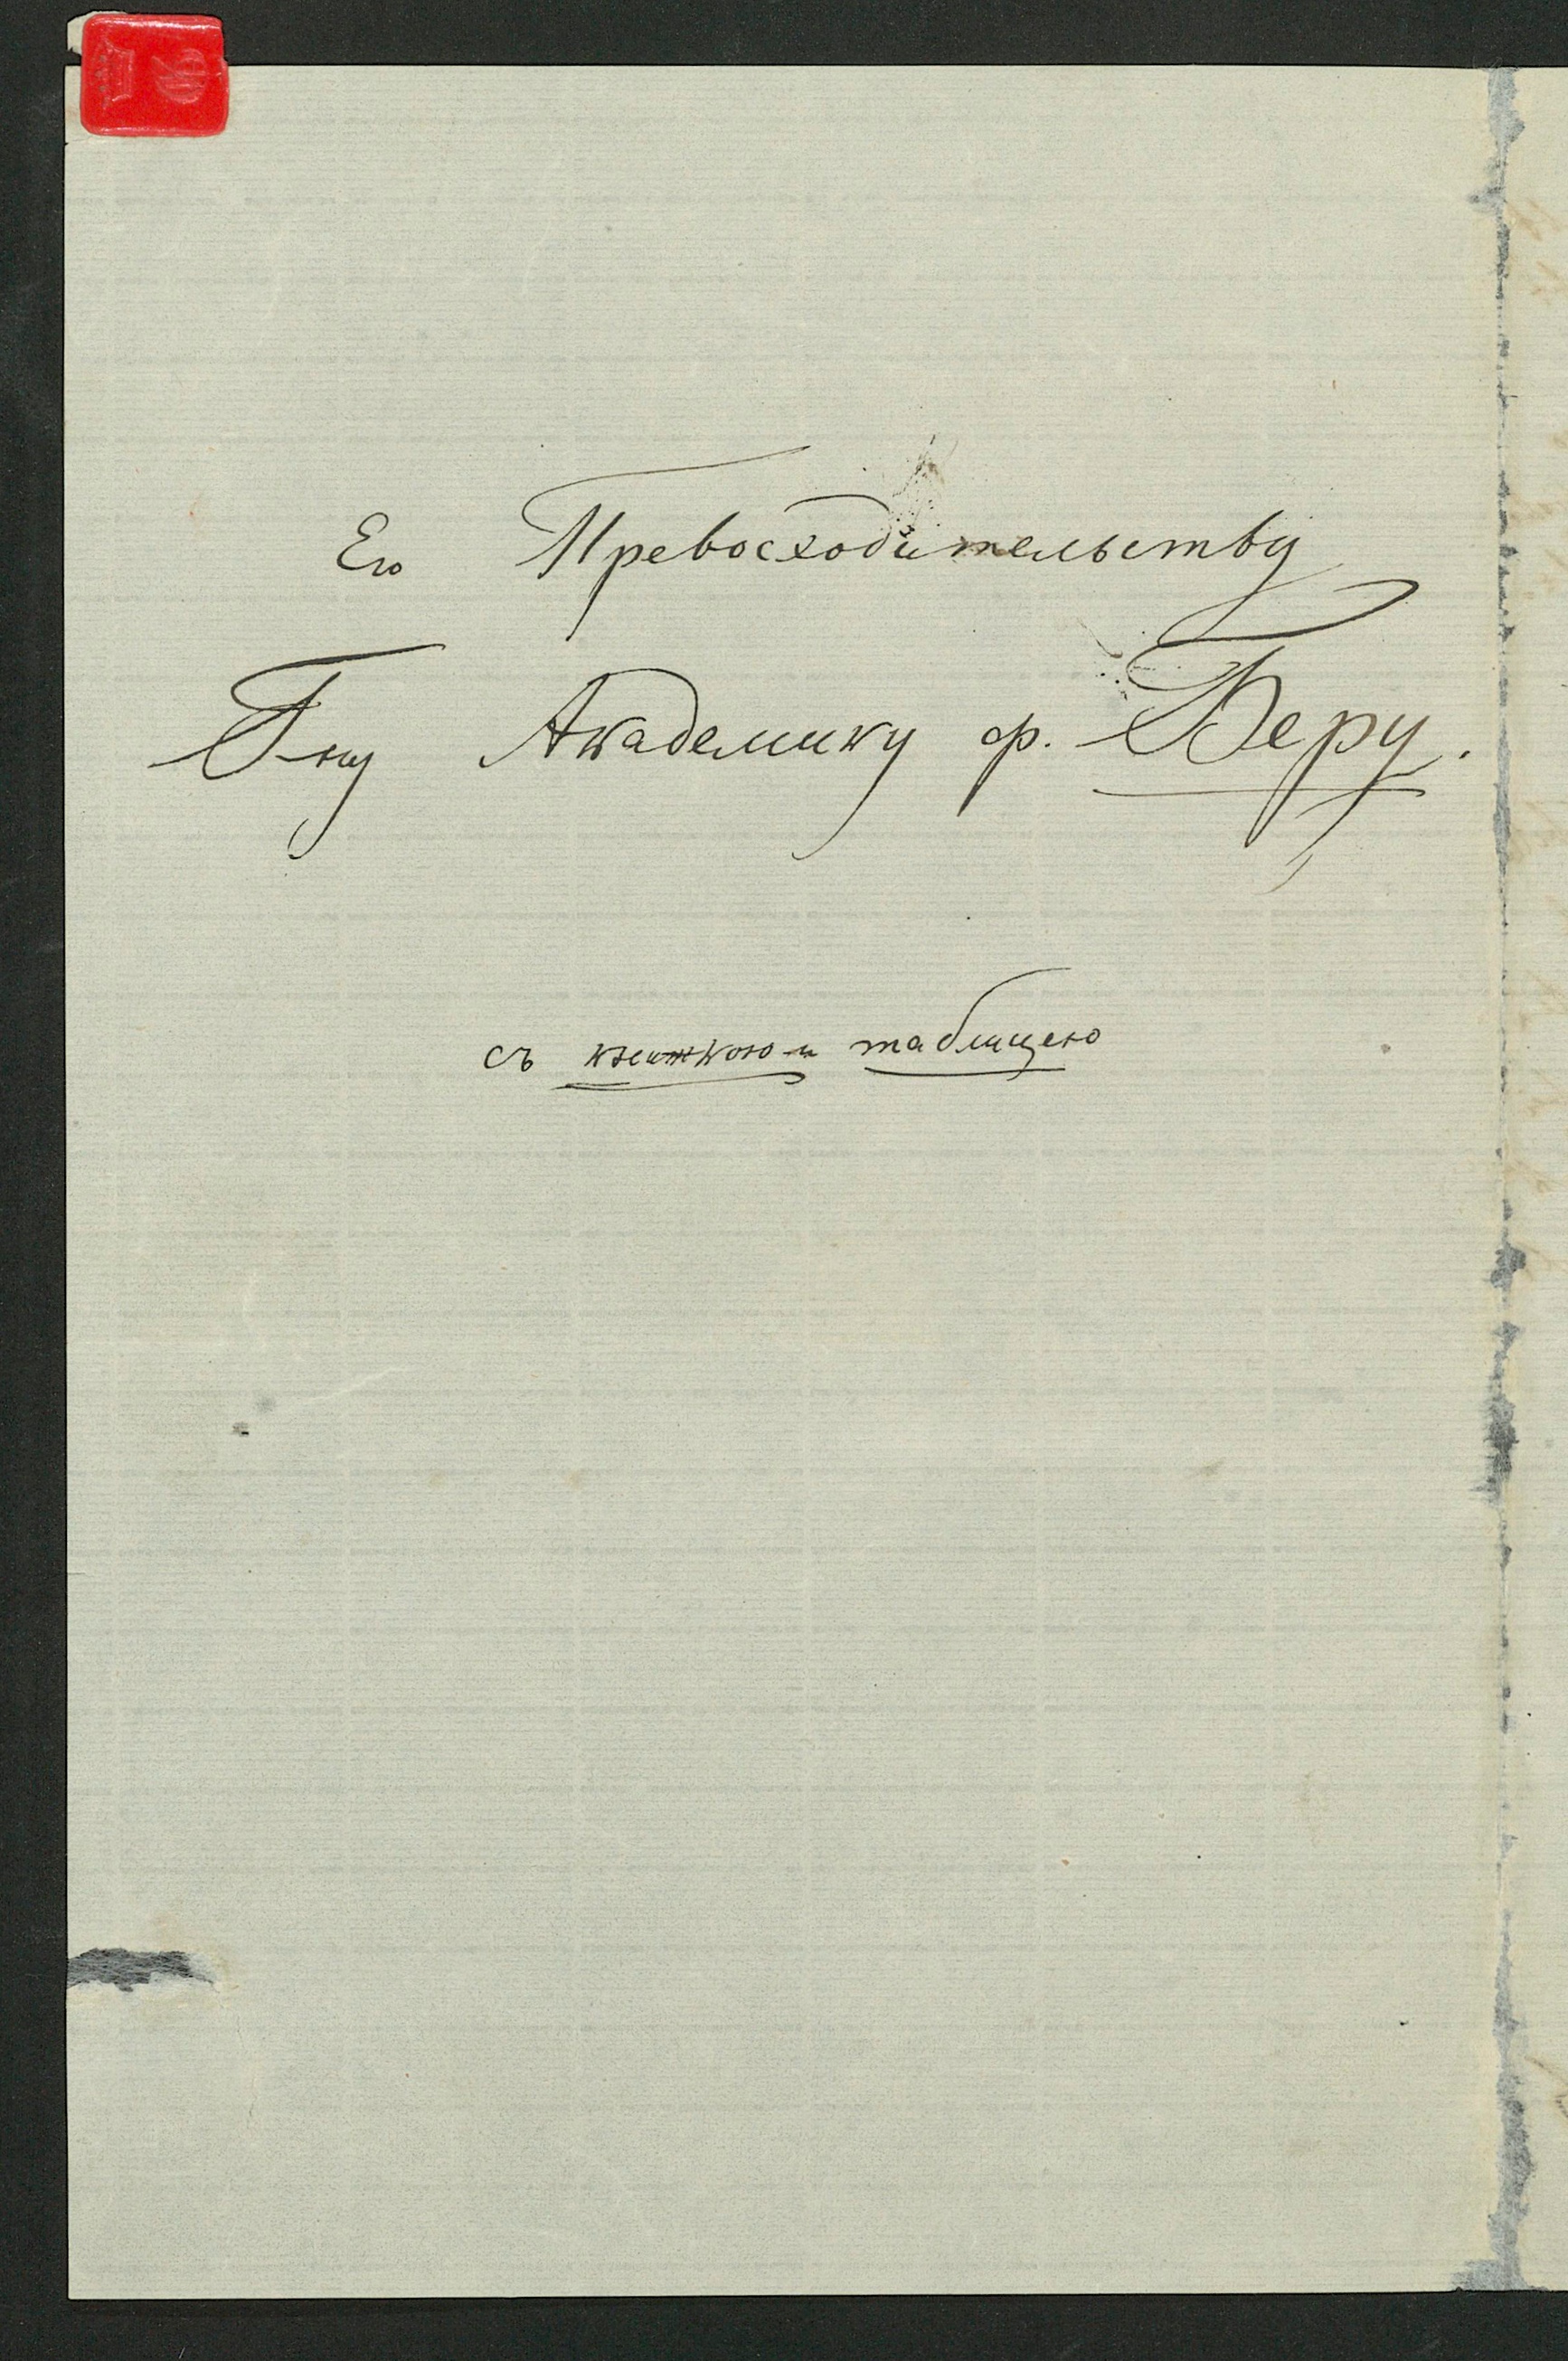 Его Превосходительству
Г-ну Академику ф. Беру.
съ книжкою и таблицею